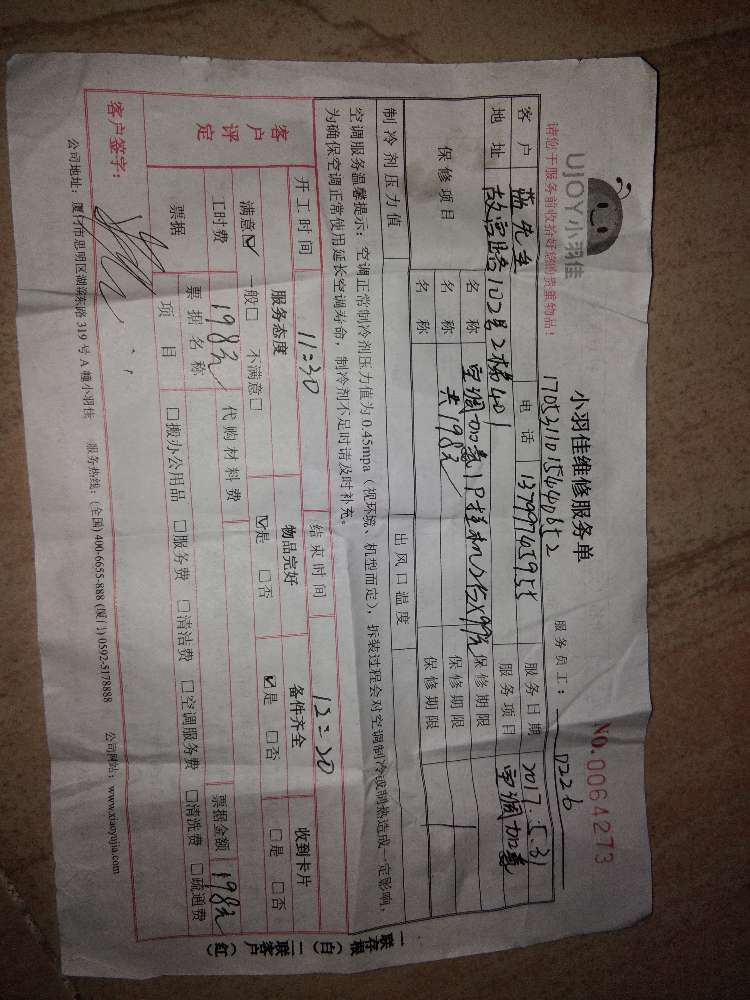 UJOY小羽佳
小羽佳维修服务单
No.0064273
170531101544068652
服务员工： 0226
请您于服务前收拾好您的贵重物品！
客户 蓝先生 电话 13799745955 服务日期 2017.5.31
地址 故宫路102号2梯401 服务项目 空调加氟
保修项目 名称 空调加氟1P挂机2台X99元 保修期限
名称 共198元 保修期限
名称 保修期限
制冷剂压力值 出风口温度
空调服务温馨提示：空调正常制冷剂压力值为0.45mpa（视环境、机型而定），拆装过程会对空调制冷或制热造成一定影响，
为确保空调正常使用延长空调寿命，制冷剂不足时请及时补充。
开工时间 11:30 结束时间 12:20
客户评定 服务态度 物品完好 备件齐全 收到卡片
满意☑ 一般□ 不满意□ ☑是 □否 ☑是 □否 □是 □否
工时费 198元 代购材料费 票据金额 198元
票据 票据名称
项目 □搬办公用品 □服务费 □清洁费 □空调服务费 □清洗费 □疏通费
客户签字：
公司地址：厦门市思明区湖滨东路319号A幢小羽佳 服务热线：(全国)400-6655-888 (厦门)0592-5178888 公司网站：www.xiaoyujia.com
一联存根（白） 二联客户（红）